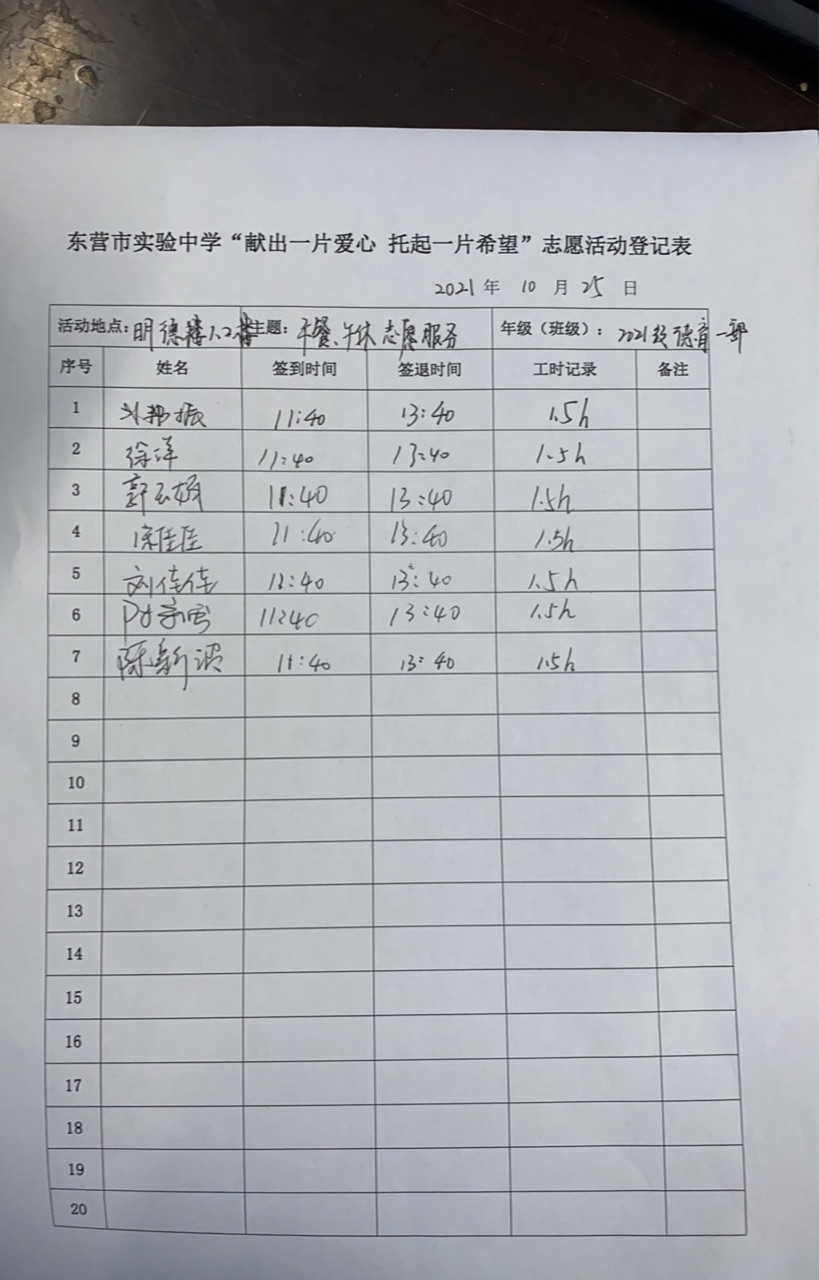 东营市实验中学“献出一片爱心 托起一片希望”志愿活动登记表
2021 年 10 月 25 日
活动地点：明德楼1.2楼 主题：午餐、午休志愿服务 年级（班级）：2021级德育一部
序号 姓名 签到时间 签退时间 工时记录 备注
1 11:40 13:40 1.5h
2 徐洋 11:40 13:40 1.5h
3 11:40 13:40 1.5h
4 徐佳佳 11:40 13:40 1.5h
5 刘佳佳 11:40 13:40 1.5h
6 11:40 13:40 1.5h
7 陈新波 11:40 13:40 1.5h
8
9
10
11
12
13
14
15
16
17
18
19
20